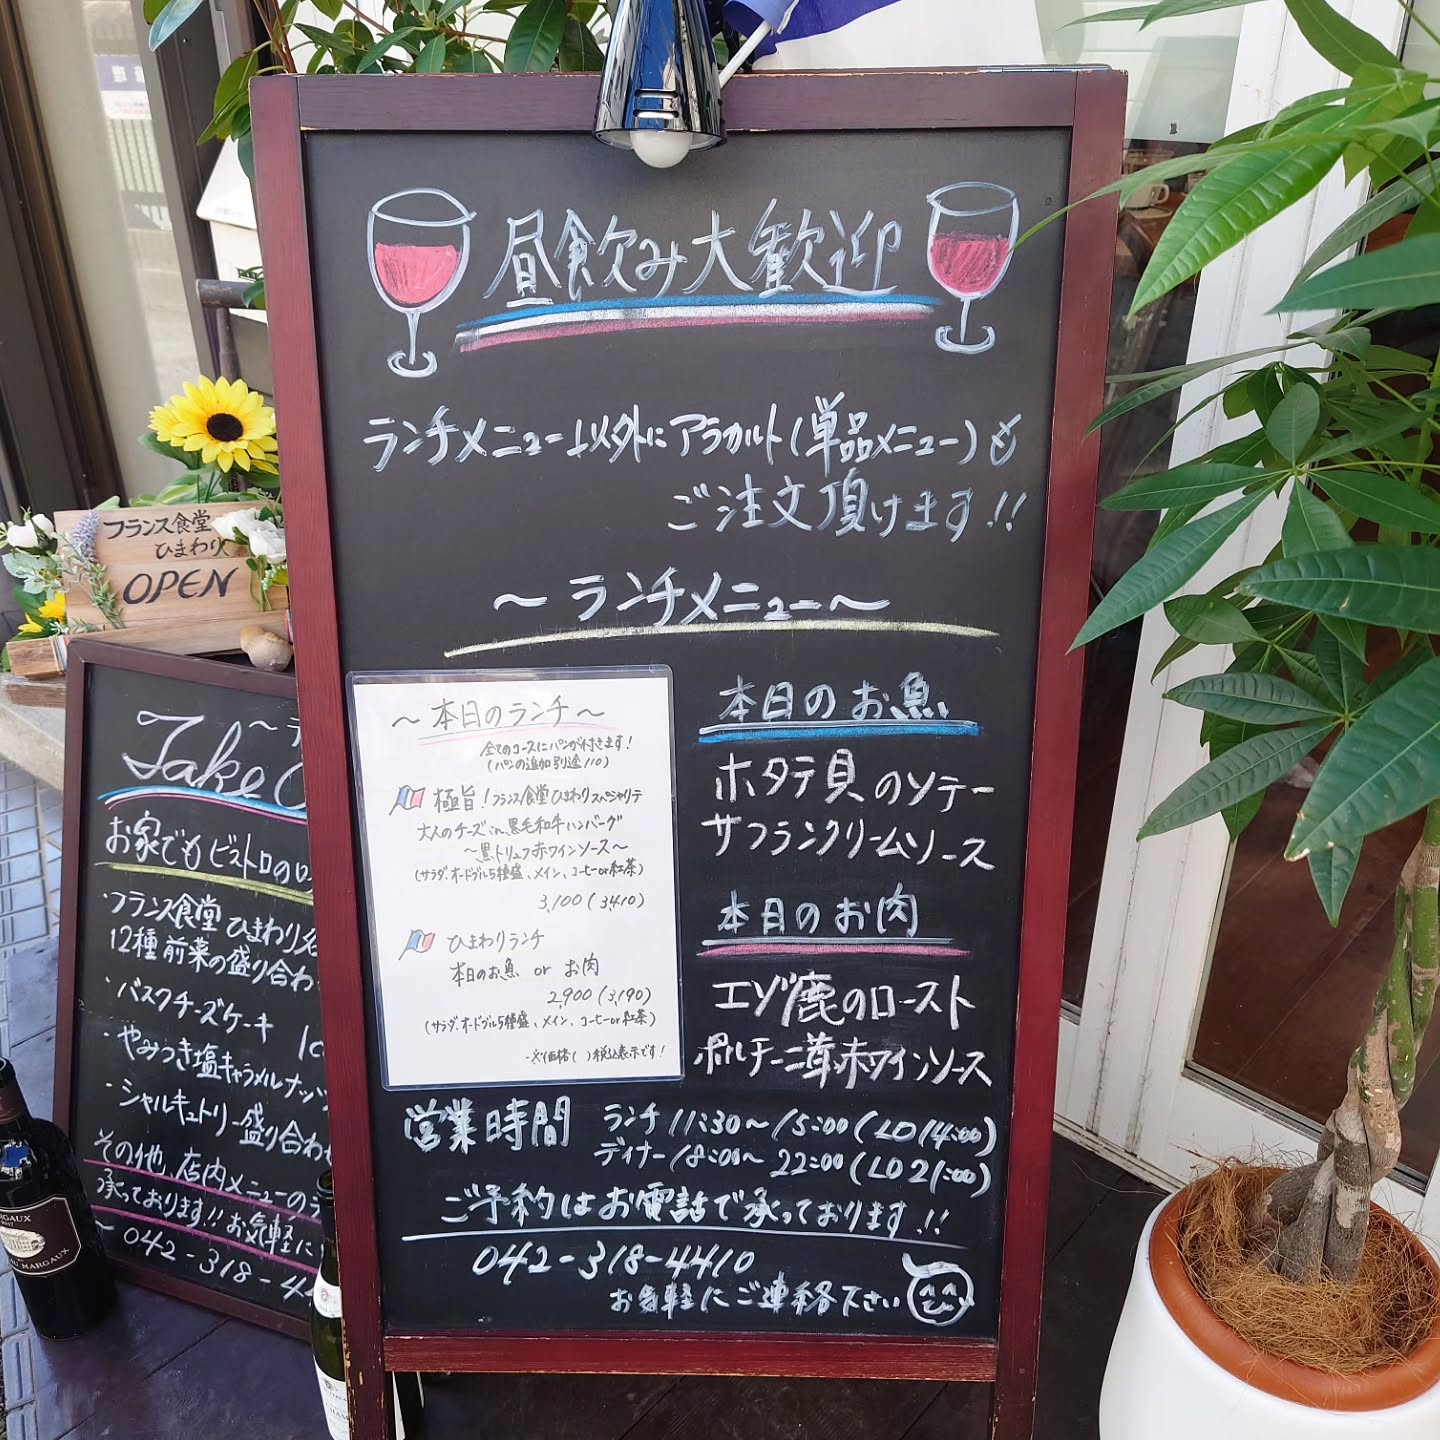 昼飲み大歓迎
ランチメニュー以外にアラカルト(単品メニュー)も
ご注文頂けます!!
～ランチメニュー～
～本日のランチ～
全てのコースにパンが付きます!
(パンの追加別途110)
極旨!フランス食堂ひまわりスペシャリテ
大人のチーズin黒毛和牛ハンバーグ
～黒トリュフ赤ワインソース～
(サラダ、オードブル5種盛、メイン、コーヒーor紅茶)
3,100(3,410)
ひまわりランチ
本日のお魚 or お肉
2,900(3,190)
(サラダ、オードブル5種盛、メイン、コーヒーor紅茶)
※価格( )税込表示です!
本日のお魚
ホタテ貝のソテー
サフランクリームソース
本日のお肉
エゾ鹿のロースト
ポルチーニ茸赤ワインソース
営業時間 ランチ 11:30～15:00(LO14:00)
ディナー 18:00～22:00(LO21:00)
ご予約はお電話で承っております!!
042-318-4410
お気軽にご連絡下さい
フランス食堂
ひまわり
OPEN
～テ
Take O
お家でもビストロのロ
・フランス食堂ひまわり名
12種前菜の盛り合わ
・バスクチーズケーキ
・やみつき塩キャラメルナッツ
・シャルキュトリー盛り合わせ
その他、店内メニューのテ
承っております!!お気軽に
～042-318-44
RGAUX
2017
AU MARGAUX